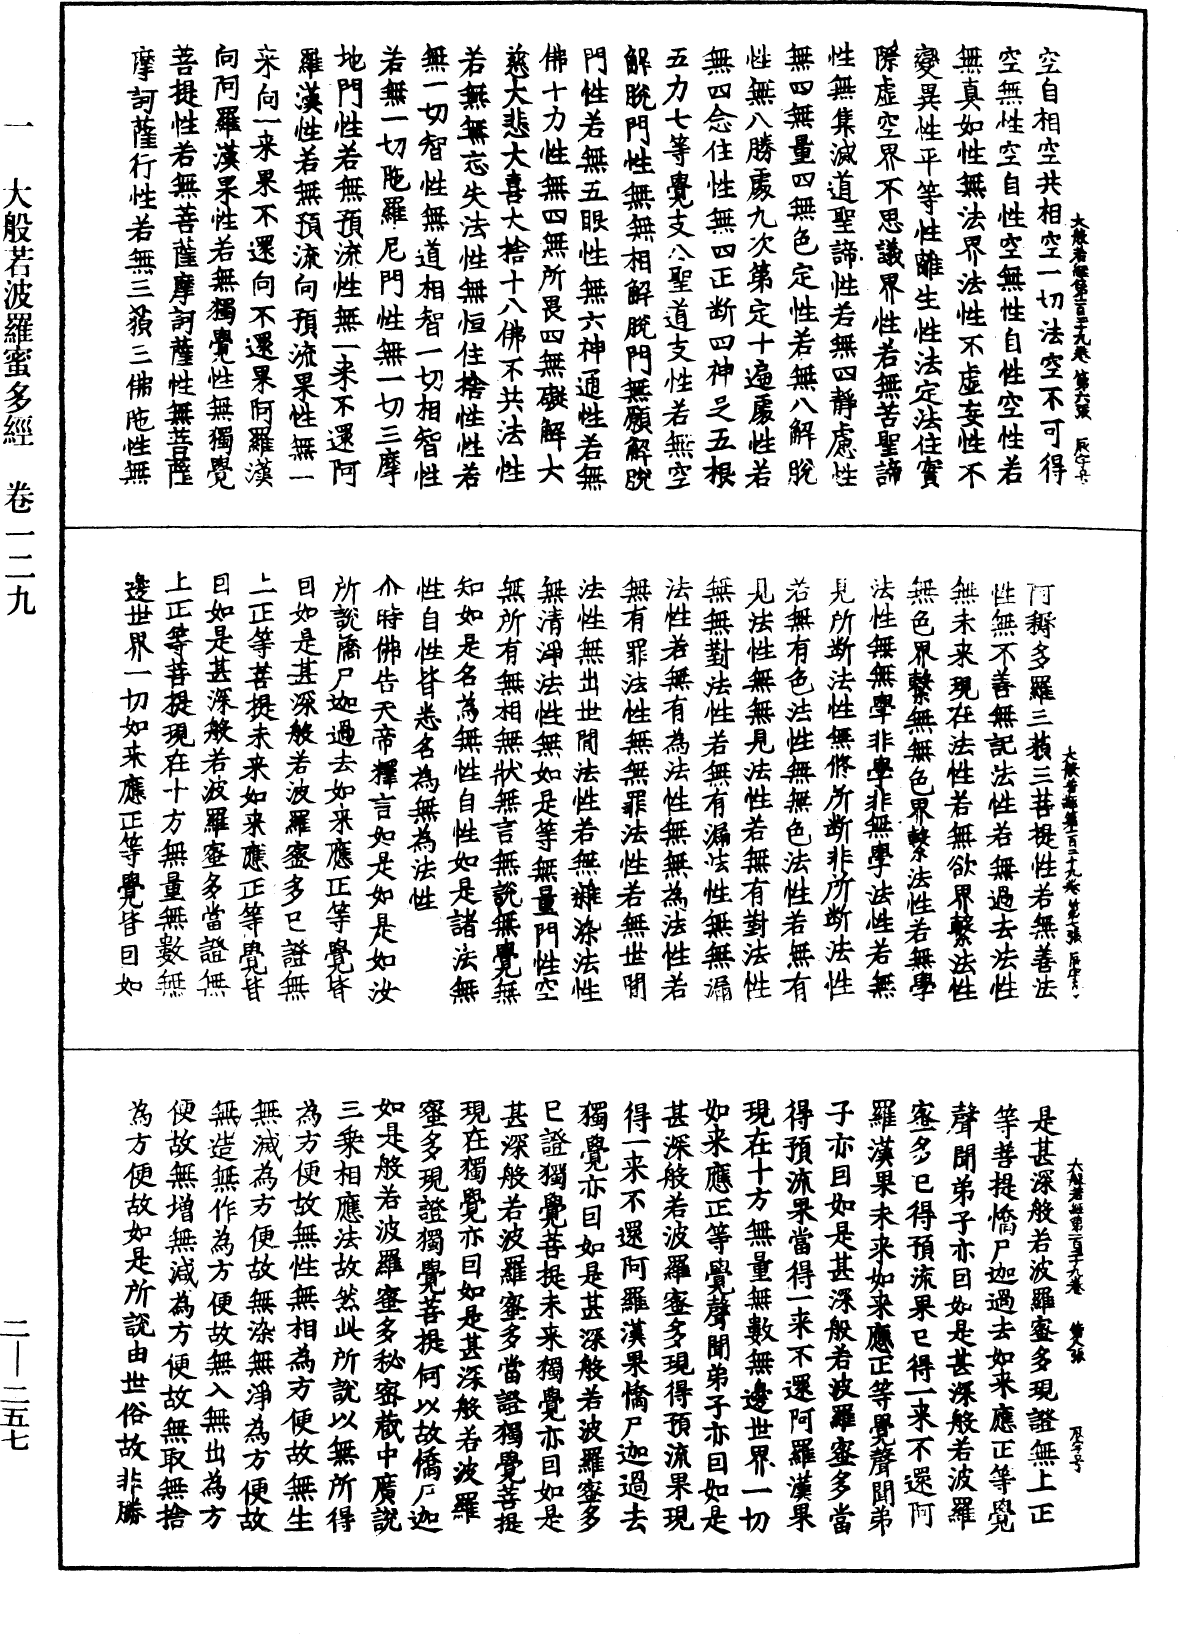 空自相空共相空一切法空不可得
空無性空自性空無性自性空性若
無真如性無法界法性不虛妄性不
變異性平等性離生性法定法住實
際虛空界不思議界性若無苦聖諦
性無集滅道聖諦性若無四靜慮性
無四無量四無色定性若無八解脫
性無八勝處九次第定十遍處性若
無四念住性無四正斷四神足五根
五力七等覺支八聖道支性若無空
解脫門性無無相解脫門無願解脫
門性若無五眼性無六神通性若無
佛十力性無四無所畏四無礙解大
慈大悲大喜大捨十八佛不共法性
若無無忘失法性無恒住捨性性若
無一切智性無道相智一切相智性
若無一切陁羅尼門性無一切三摩
地門性若無預流性無一来不還阿
羅漢性若無預流向預流果性無一
来向一来果不還向不還果阿羅漢
向阿羅漢果性若無獨覺性無獨覺
菩提性若無菩薩摩訶薩性無菩薩
摩訶薩行性若無三藐三佛陁性無
大般若經第一百二十九卷 第六張 辰字号
阿耨多羅三藐三菩提性若無善法
性無不善無記法性若無過去法性
無未来現在法性若無欲界繫法性
無色界繫無無色界繫法性若無學
法性無無學非學非無學法性若無
見所斷法性無修所斷非所斷法性
若無有色法性無無色法性若無有
見法性無無見法性若無有對法性
無無對法性若無有漏法性無無漏
法性若無有為法性無無為法性若
無有罪法性無無罪法性若無世間
法性無出世間法性若無雜染法性
無清淨法性無如是等無量門性空
無所有無相無狀無言無說無覺無
知如是名為無性自性如是諸法無
性自性皆悉名為無為法性
尒時佛告天帝釋言如是如是如汝
所說憍尸迦過去如来應正等覺皆
曰如是甚深般若波羅蜜多已證無
上正等菩提未来如来應正等覺皆
曰如是甚深般若波羅蜜多當證無
上正等菩提現在十方無量無數無
邊世界一切如来應正等覺皆曰如
大般若經第一百二十九卷 第七張 辰字号
是甚深般若波羅蜜多現證無上正
等菩提憍尸迦過去如来應正等覺
聲聞弟子亦曰如是甚深般若波羅
蜜多已得預流果已得一来不還阿
羅漢果未来如来應正等覺聲聞弟
子亦曰如是甚深般若波羅蜜多當
得預流果當得一来不還阿羅漢果
現在十方無量無數無邊世界一切
如来應正等覺聲聞弟子亦曰如是
甚深般若波羅蜜多現得預流果現
得一来不還阿羅漢果憍尸迦過去
獨覺亦曰如是甚深般若波羅蜜多
已證獨覺菩提未来獨覺亦曰如是
甚深般若波羅蜜多當證獨覺菩提
現在獨覺亦曰如是甚深般若波羅
蜜多現證獨覺菩提何以故憍尸迦
如是般若波羅蜜多秘密藏中廣說
三乘相應法故然此所說以無所得
為方便故無性無相為方便故無生
無滅為方便故無染無淨為方便故
無造無作為方便故無入無出為方
便故無增無減為方便故無取無捨
為方便故如是所說由世俗故非勝
大般若經第一百二十九卷 第八張 辰字号
一 大般若波羅蜜多經 卷一二九
二—二五七